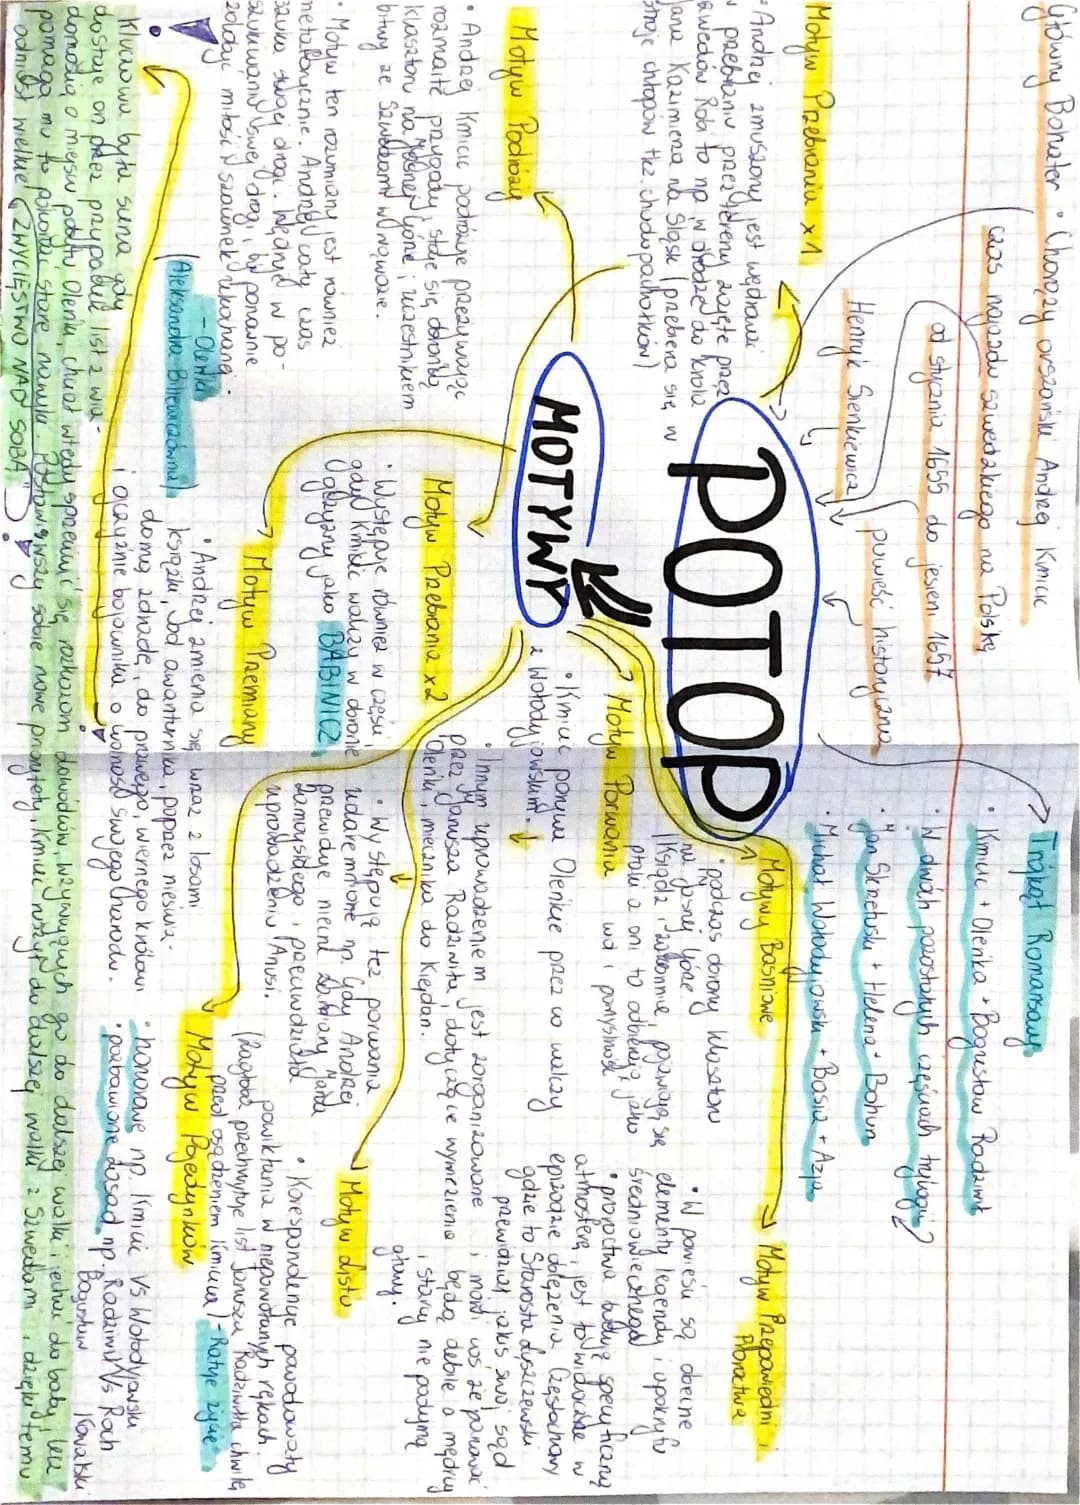 Główny Bohater • Chorąży orszański Andrzej Kmicic
czas najazdu szwedzkiego na Polskę
od stycznia 1655 do jesieni 1657
Henryk Sienkiewicz
powieść historyczna
POTOP
MOTYWY
Trójkąt Romansowy
• Kmicic + Oleńka + Bogusław Radziwiłł
• W dwóch pozostałych częściach trylogii?
• Jan Skrzetuski + Helena + Bohun
• Michał Wołodyjowski + Basia + Azja
Motyw Przebrania x1
• Andrzej zmuszony jest wędrować
w przebraniu przez tereny zajęte przez
szwedów. Robi to np w drodze do króla
Jana Kazimierza na Śląsk (przebiera się w
stroje chłopów tzw. chudopachołków)
Motyw Podróży
• Andrzej Kmicic podróżuje przeżywając
rozmaite przygody, staje się obrońcą
klasztoru na Jasnej Górze i uczestnikiem
bitwy ze Szwedami w
• Motyw ten rozumiany jest również
metaforycznie. Andrzej cały czas
szuka swojej drogi. Wędruje w po-
szukiwaniu swej drogi, by ponownie
zdobyć miłość i szacunek ukochanej.
- Oleńka
(Aleksandra Billewiczówna)
Motyw Przebrania x2
• Występuje również w części,
gdy Kmicic walczy w obronie
ojczyzny jako BABINICZ
Motyw Przemiany
• Andrzej zmienia się wraz z losami
książki, od awanturnika, poprzez nieświa-
domą zdradę, do prawego, wiernego królowi
i ojczyźnie bojownika o wolność swojego narodu.
Motyw Porwania
• Kmicic porywa Oleńkę przez co walczy
z Wołodyjowskim.
• Innym uprowadzeniem jest zorganizowane
przez Janusza Radziwiłła, dotyczące wywiezienia
Oleńki i miecznika do Kiejdan.
• Występują też porwania
udaremnione np gdy Andrzej
przewiduje niecne zamiary
Zamoyskiego i przeciwdziała
uprowadzeniu Anusi.
Motywy Baśniowe
• podczas obrony klasztoru
na Jasnej Górze.
(Księdzu i zakonnie pojawiają się
ptaki a oni to odbierają jako
i pomyślność
Motyw Przepowiedni i
Proroctwa
• W powieści są obecne
elementy legendy i upokyfu
średniowiecznego
• proroctwa budują specyficzną
atmosferę, jest to widoczne w
epizodzie oblężenia Częstochowy
gdzie to Starosta
przewidział jakiś swój sąd
i mówi coś że panować
będą debile a mędrcy
i starzy nie podymą
głowy.
Motyw Listu
• Korespondencje powodowały
powikłania w niepowołanych rękach.
(Zagłoba przechwytuje list Janusza Radziwiłła chwilę
przed osądzeniem Kmicica) - Ratuje życie
Motyw Pojedynków
• honorowe np. Kmicic vs Wołodyjowski
• pozbawione zasad np. Radziwiłł Vs Roch
Bogusław Kowalski
Kluczowa była scena gdy
dostaje on przez przypadek list z wia-
domością o miejscu pobytu Oleńki, chciał wtedy sprzeciwić się rozkazom dowódców, wzywających go do dalszej walki i jechać do baby, lecz
pomagają mu to pokonać stare nawyki. Postawiwszy sobie nowe priorytety, Kmicic ruszył do dalszej walki z Szwedami i dzięki temu
odniósł wielkie (ZWYCIĘSTWO NAD SOBĄ)